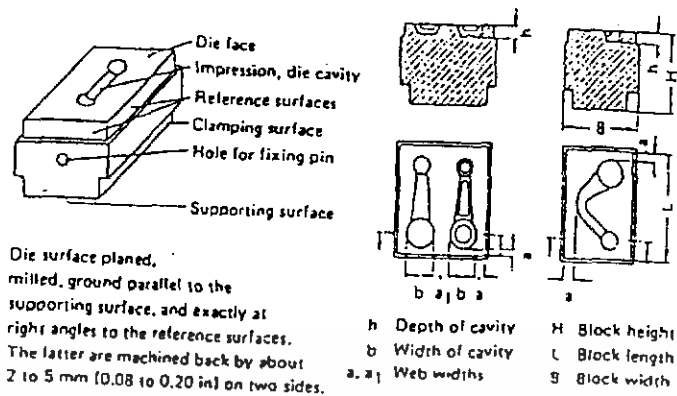 Die face
Impression, die cavity
Reference surfaces
Clamping surface
Hole for fixing pin
Supporting surface
Die surface planed,
milled, ground parallel to the
supporting surface, and exactly at
right angles to the reference surfaces.
The latter are machined back by about
2 to 5 mm (0.08 to 0.20 in) on two sides.
h
h
H
B
a
L
a
b a₁ b a
a
h Depth of cavity
b Width of cavity
a, a₁ Web widths
H Block height
L Block length
B Block width